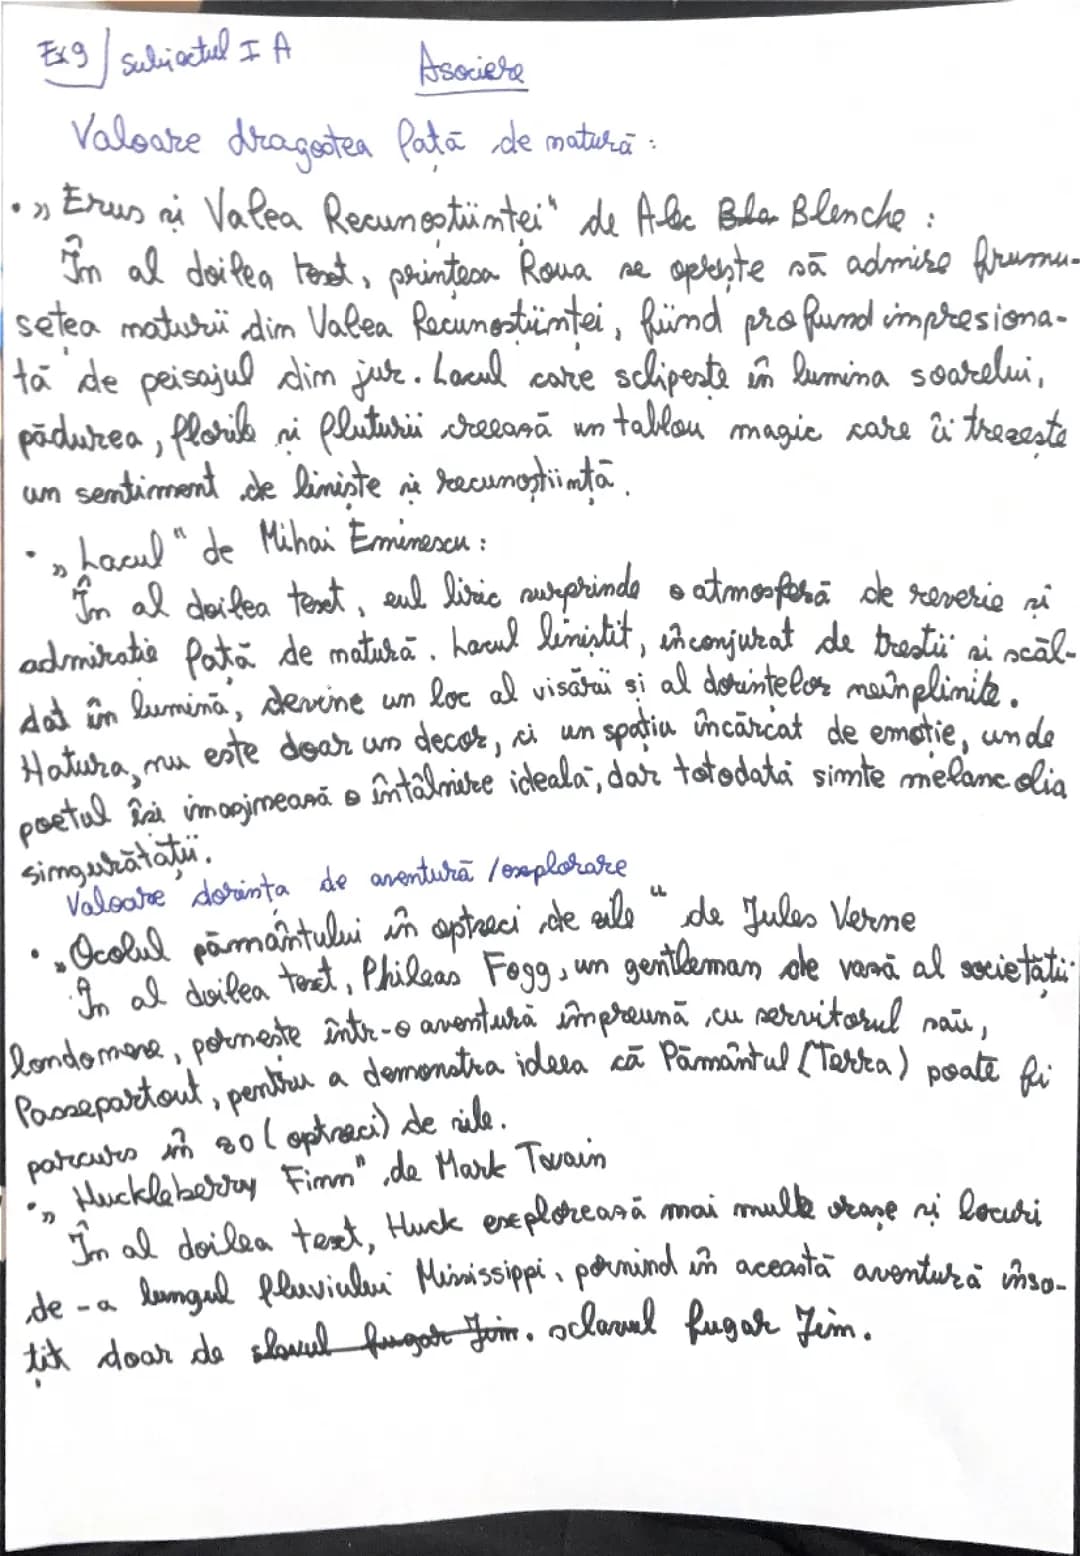 Ex9 / Subiectul I A
Asociere
Valoare dragostea față de natură :
• „Erus și Valea Recunoștiinței" de Alec Bla Blenche :
În al doilea text, prințesa Roua se oprește să admire frumu-
setea naturii din Valea Recunoștiinței, fiind profund impresiona-
tă de peisajul din jur. Lacul care sclipește în lumina soarelui,
pădurea, florile și fluturii creează un tablou magic care îi trezește
un sentiment de liniște și recunoștiință.
• „Lacul" de Mihai Eminescu :
În al doilea text, eul liric surprinde o atmosferă de reverie și
admirație față de natură. Lacul liniștit, înconjurat de trestii și scăl-
dat în lumină, devine un loc al visării și al dorințelor neînplinite.
Natura, nu este doar un decor, ci un spațiu încărcat de emoție, unde
poetul își imaginează o întâlnire ideală, dar totodată simte melancolia
singurătății.
Valoare dorința de aventură /explorare
• „Ocolul pământului în optzeci de zile" de Jules Verne
În al doilea text, Phileas Fogg, un gentleman de vază al societății
londoneze, pornește într-o aventură împreună cu servitorul său,
Passepartout, pentru a demonstra ideea că Pământul (Terra) poate fi
parcurs în 80 (optzeci) de zile.
• „Huckleberry Finn" de Mark Twain
În al doilea text, Huck explorează mai multe orașe și locuri
de-a lungul fluviului Mississippi, pornind în această aventură înso-
țit doar de slavul fugar Jim. sclavul fugar Jim.